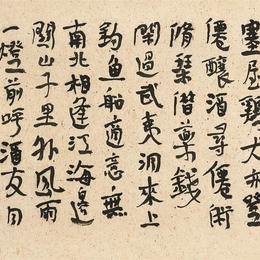 居鷄犬亦登
僊釀酒尋僊術
脩琹借藥錢
閑過武夷洞來上
釣魚船適意無
南北相逢江海邊
關山千里外風雨
一燈前呼酒友同